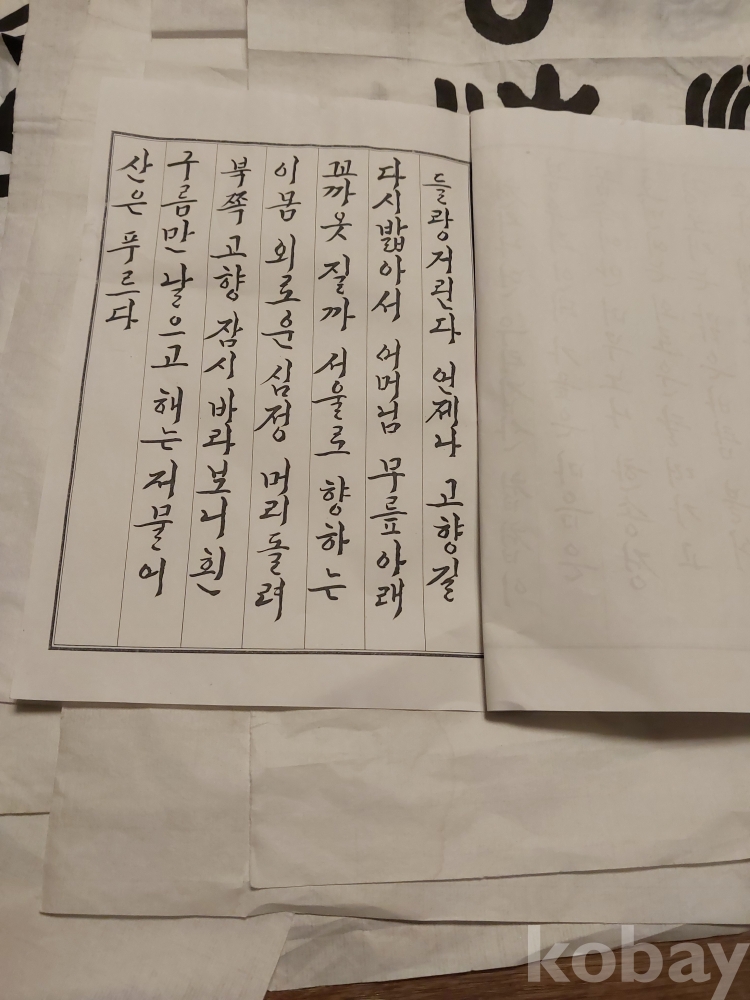 들랑거린다 언제나 고향길
다시 밟아서 어머님 무릎 아래
꼬까옷 질까 서울로 향하는
이 몸 외로운 심정 머리 돌려
북쪽 고향 잠시 바라보니 흰
구름만 날으고 해는 저물어
산은 푸르다
kobay